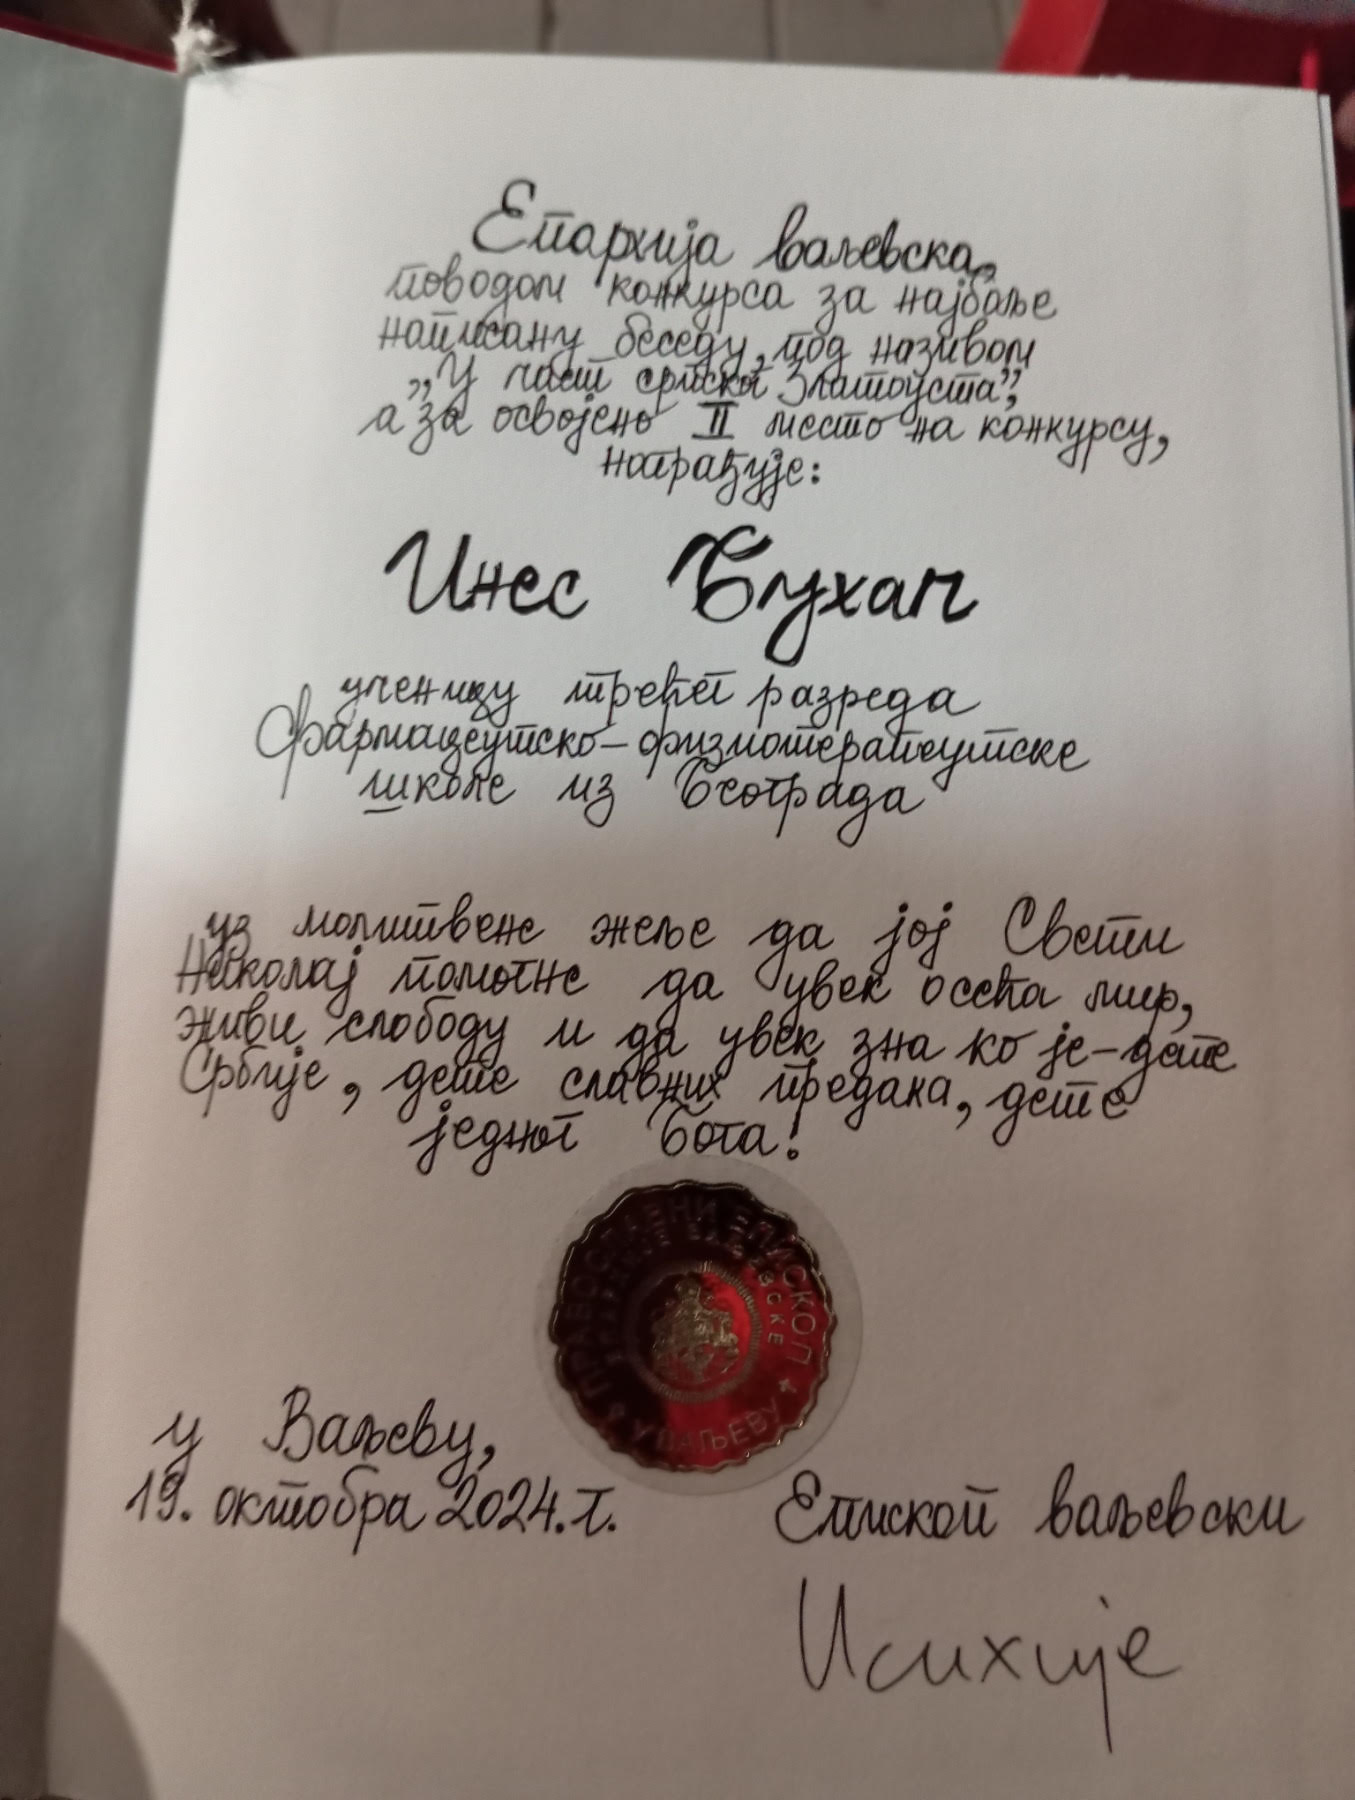 Епархија ваљевска,
поводом конкурса за најбоље
написану беседу, под називом
„У част српског Златоуста”,
а за освојено II место на конкурсу,
награђује:
Инес Бухач
ученицу трећег разреда
Фармацеутско-физиотерапеутске
школе из Београда
уз молитвене жеље да јој Свети
Николај помогне да увек осећа мир,
живи слободу и да увек зна ко је-дете
Србије, дете славних предака, дете
једног Бога!
ПРАВОСЛАВНИ ЕПИСКОП
ЕПАРХИЈЕ ВАЉЕВСКЕ
У ВАЉЕВУ
у Ваљеву,
19. октобра 2024. г.
Епископ ваљевски
Исихије